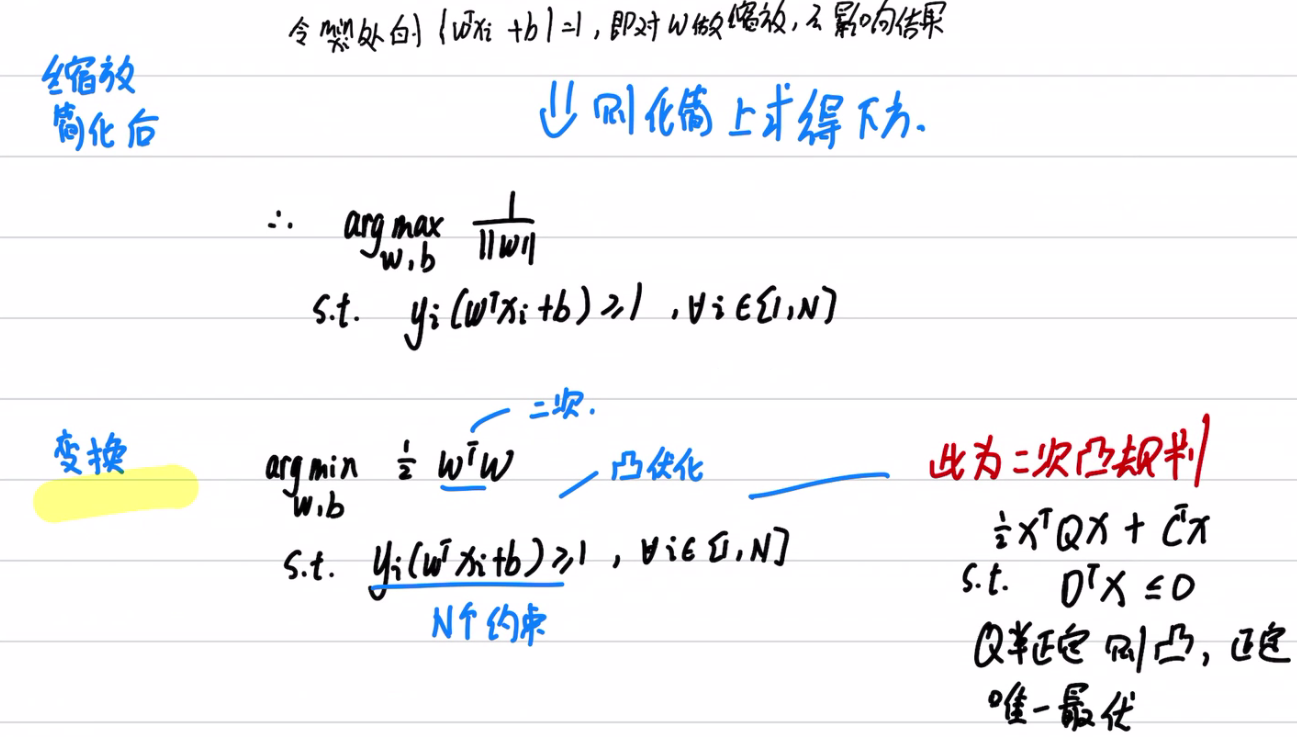 令 min xi 处的 |wᵀxi + b| = 1, 即对 w 做缩放, 不影响结果
缩放
简化后
⇓ 则化简上式得下方.
∴ arg max 1/||w||
w,b
s.t. yi(wᵀxi+b) ≥ 1 , ∀i∈[1,N]
二次.
变换
arg min ½ wᵀw
w,b
凸优化
此为二次凸规划
s.t. yi(wᵀxi+b) ≥ 1 , ∀i∈[1,N]
N个约束
½xᵀQx + Cᵀx
s.t. DᵀX ≤ 0
Q半正定 则凸, 正定
唯一最优